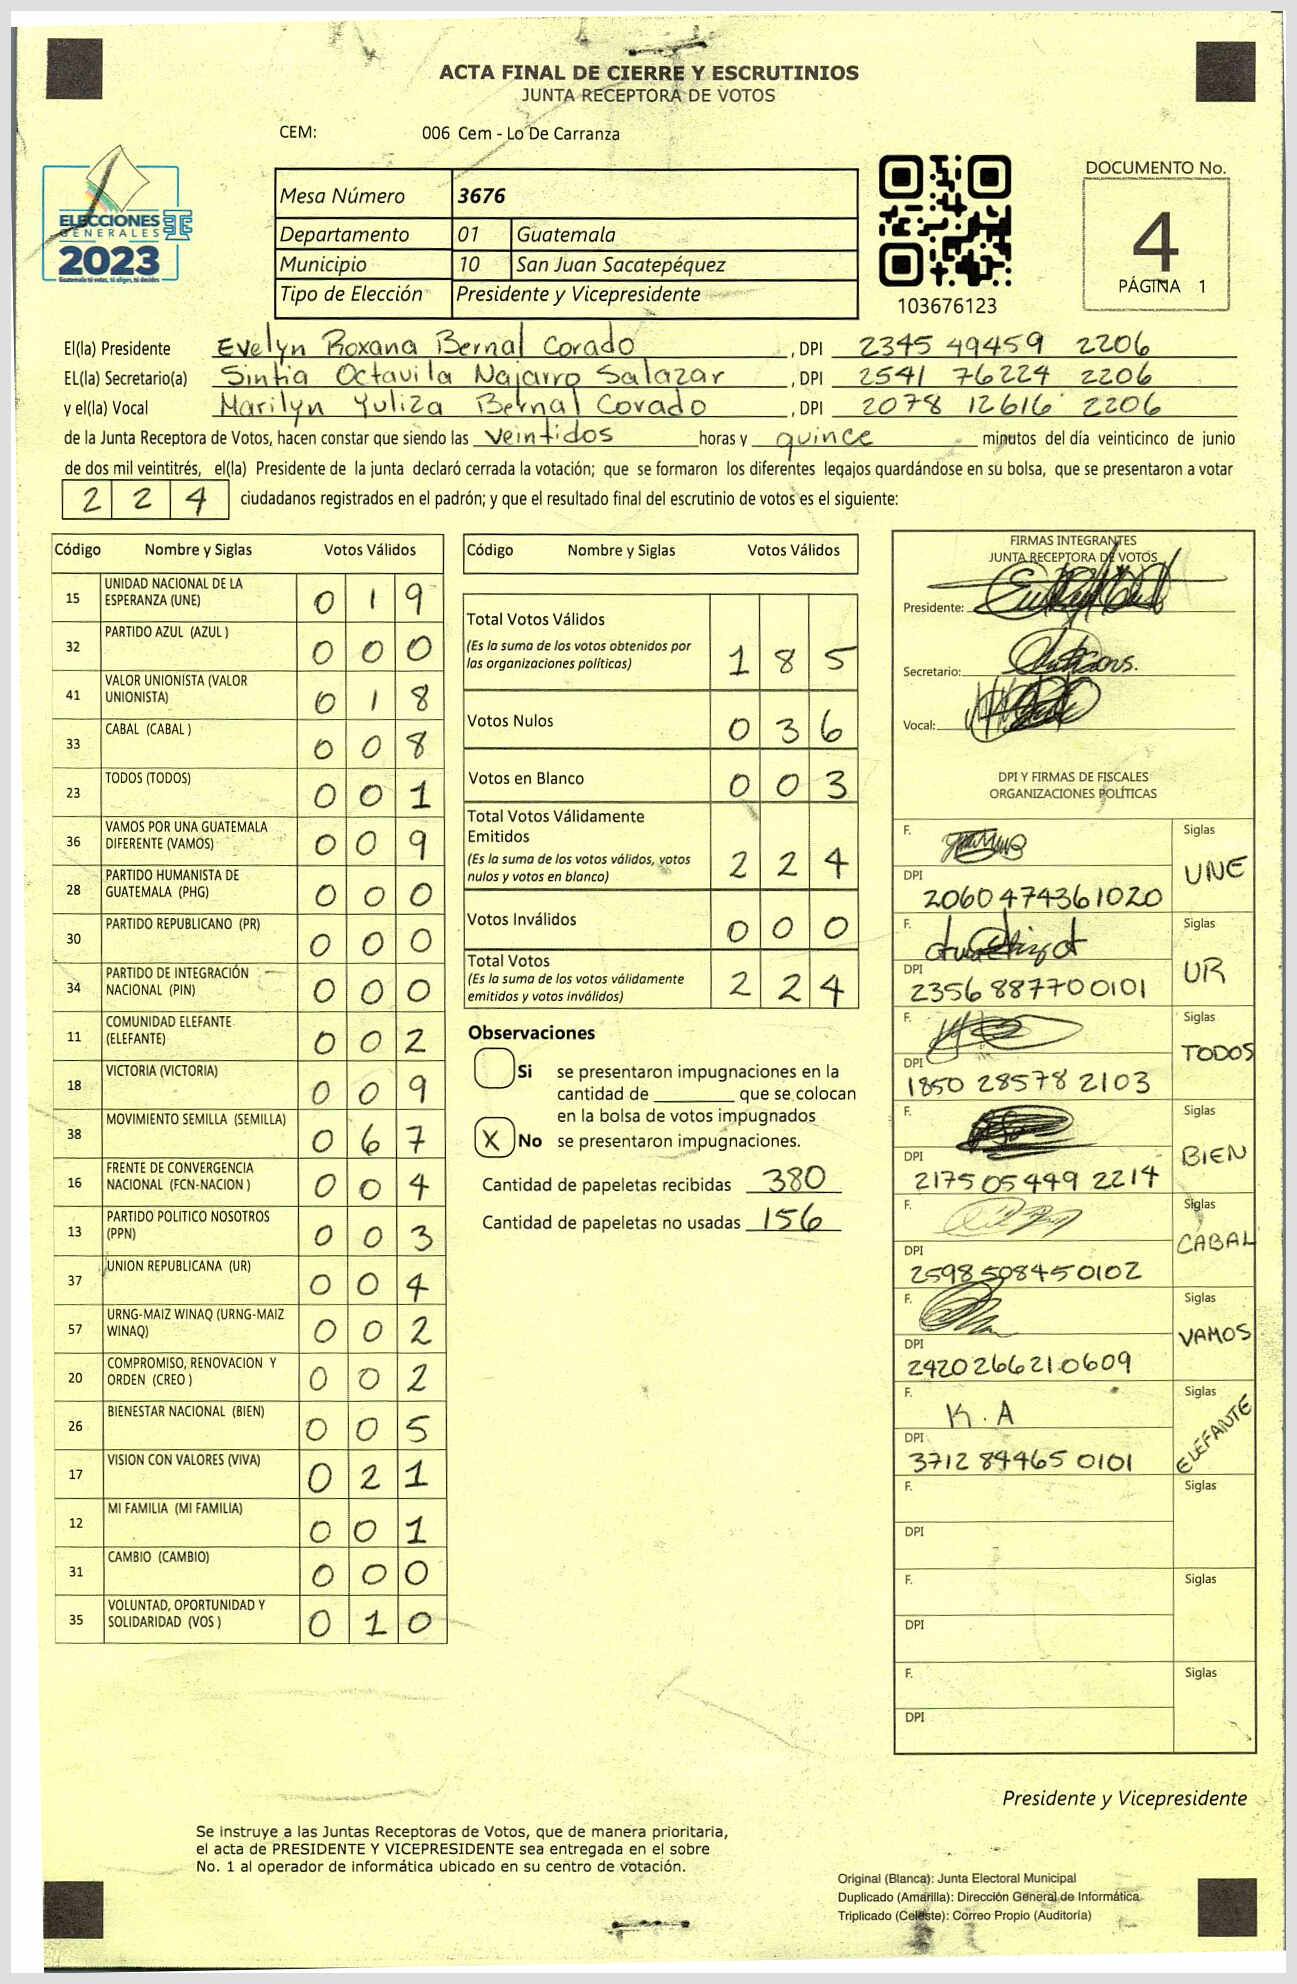 ACTA FINAL DE CIERRE Y ESCRUTINIOS
JUNTA RECEPTORA DE VOTOS
CEM: 006 Cem - Lo De Carranza
ELECCIONES
GENERALES
2023
Guatemala tú votas, tú eliges, tú decides
Mesa Número 3676
Departamento 01 Guatemala
Municipio 10 San Juan Sacatepéquez
Tipo de Elección Presidente y Vicepresidente
103676123
DOCUMENTO No.
4
PÁGINA 1
El(la) Presidente Evelyn Roxana Bernal Corado , DPI 2345 49459 2206
EL(la) Secretario(a) Sintia Octavila Najarro Salazar , DPI 2541 76224 2206
y el(la) Vocal Marilyn Yuliza Bernal Corado , DPI 2078 12616 2206
de la Junta Receptora de Votos, hacen constar que siendo las veintidos horas y quince minutos del día veinticinco de junio
de dos mil veintitrés, el(la) Presidente de la junta declaró cerrada la votación; que se formaron los diferentes legajos guardándose en su bolsa, que se presentaron a votar
2 2 4 ciudadanos registrados en el padrón; y que el resultado final del escrutinio de votos es el siguiente:
Código Nombre y Siglas Votos Válidos
15 UNIDAD NACIONAL DE LA ESPERANZA (UNE) 0 1 9
32 PARTIDO AZUL (AZUL ) 0 0 0
41 VALOR UNIONISTA (VALOR UNIONISTA) 0 1 8
33 CABAL (CABAL ) 0 0 8
23 TODOS (TODOS) 0 0 1
36 VAMOS POR UNA GUATEMALA DIFERENTE (VAMOS) 0 0 9
28 PARTIDO HUMANISTA DE GUATEMALA (PHG) 0 0 0
30 PARTIDO REPUBLICANO (PR) 0 0 0
34 PARTIDO DE INTEGRACIÓN NACIONAL (PIN) 0 0 0
11 COMUNIDAD ELEFANTE (ELEFANTE) 0 0 2
18 VICTORIA (VICTORIA) 0 0 9
38 MOVIMIENTO SEMILLA (SEMILLA) 0 6 7
16 FRENTE DE CONVERGENCIA NACIONAL (FCN-NACION ) 0 0 4
13 PARTIDO POLITICO NOSOTROS (PPN) 0 0 3
37 UNION REPUBLICANA (UR) 0 0 4
57 URNG-MAIZ WINAQ (URNG-MAIZ WINAQ) 0 0 2
20 COMPROMISO, RENOVACION Y ORDEN (CREO ) 0 0 2
26 BIENESTAR NACIONAL (BIEN) 0 0 5
17 VISION CON VALORES (VIVA) 0 2 1
12 MI FAMILIA (MI FAMILIA) 0 0 1
31 CAMBIO (CAMBIO) 0 0 0
35 VOLUNTAD, OPORTUNIDAD Y SOLIDARIDAD (VOS ) 0 1 0
Código Nombre y Siglas Votos Válidos
Total Votos Válidos
(Es la suma de los votos obtenidos por
las organizaciones políticas) 1 8 5
Votos Nulos 0 3 6
Votos en Blanco 0 0 3
Total Votos Válidamente
Emitidos
(Es la suma de los votos válidos, votos
nulos y votos en blanco) 2 2 4
Votos Inválidos 0 0 0
Total Votos
(Es la suma de los votos válidamente
emitidos y votos inválidos) 2 2 4
Observaciones
Si se presentaron impugnaciones en la
cantidad de ________ que se colocan
en la bolsa de votos impugnados
X No se presentaron impugnaciones.
Cantidad de papeletas recibidas 380
Cantidad de papeletas no usadas 156
FIRMAS INTEGRANTES
JUNTA RECEPTORA DE VOTOS
Presidente:
Secretario:
Vocal:
DPI Y FIRMAS DE FISCALES
ORGANIZACIONES POLÍTICAS
F. Siglas UNE
DPI 2060 47436 1020
F. Siglas UR
DPI 2356 88770 0101
F. Siglas TODOS
DPI 1850 28578 2103
F. Siglas BIEN
DPI 2175 05449 2214
F. Siglas CABAL
DPI 2598 50845 0102
F. Siglas VAMOS
DPI 2420 26621 0609
F. K.A Siglas ELEFANTE
DPI 3712 84465 0101
F. Siglas
DPI
F. Siglas
DPI
F. Siglas
DPI
Presidente y Vicepresidente
Se instruye a las Juntas Receptoras de Votos, que de manera prioritaria,
el acta de PRESIDENTE Y VICEPRESIDENTE sea entregada en el sobre
No. 1 al operador de informática ubicado en su centro de votación.
Original (Blanca): Junta Electoral Municipal
Duplicado (Amarilla): Dirección General de Informática
Triplicado (Celeste): Correo Propio (Auditoría)